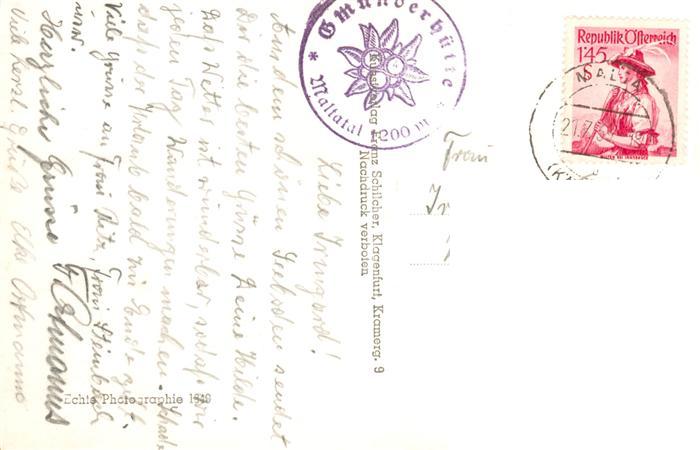 Liebe Irmgard!
Aus dem schönen Seeboden sendet
Dir die besten Grüsse Deine Hilde.
Das Wetter ist wunderbar, sodass wir
jeden Tag Wanderungen machen. Schade
dass der Urlaub bald zu Ende geht.
Viele Grüsse an Frau Rita, Frau Steinbüchl
usw.
Herzliche Grüsse
Viele herzl. Grüsse
Gmünderhütte
* Maltatal 1200 m *
Franz Schilcher, Klagenfurt, Kramerg. 9
Nachdruck verboten
Echte Photographie 1949
Frau
Republik Österreich
1'45
MALTA
21.7.5